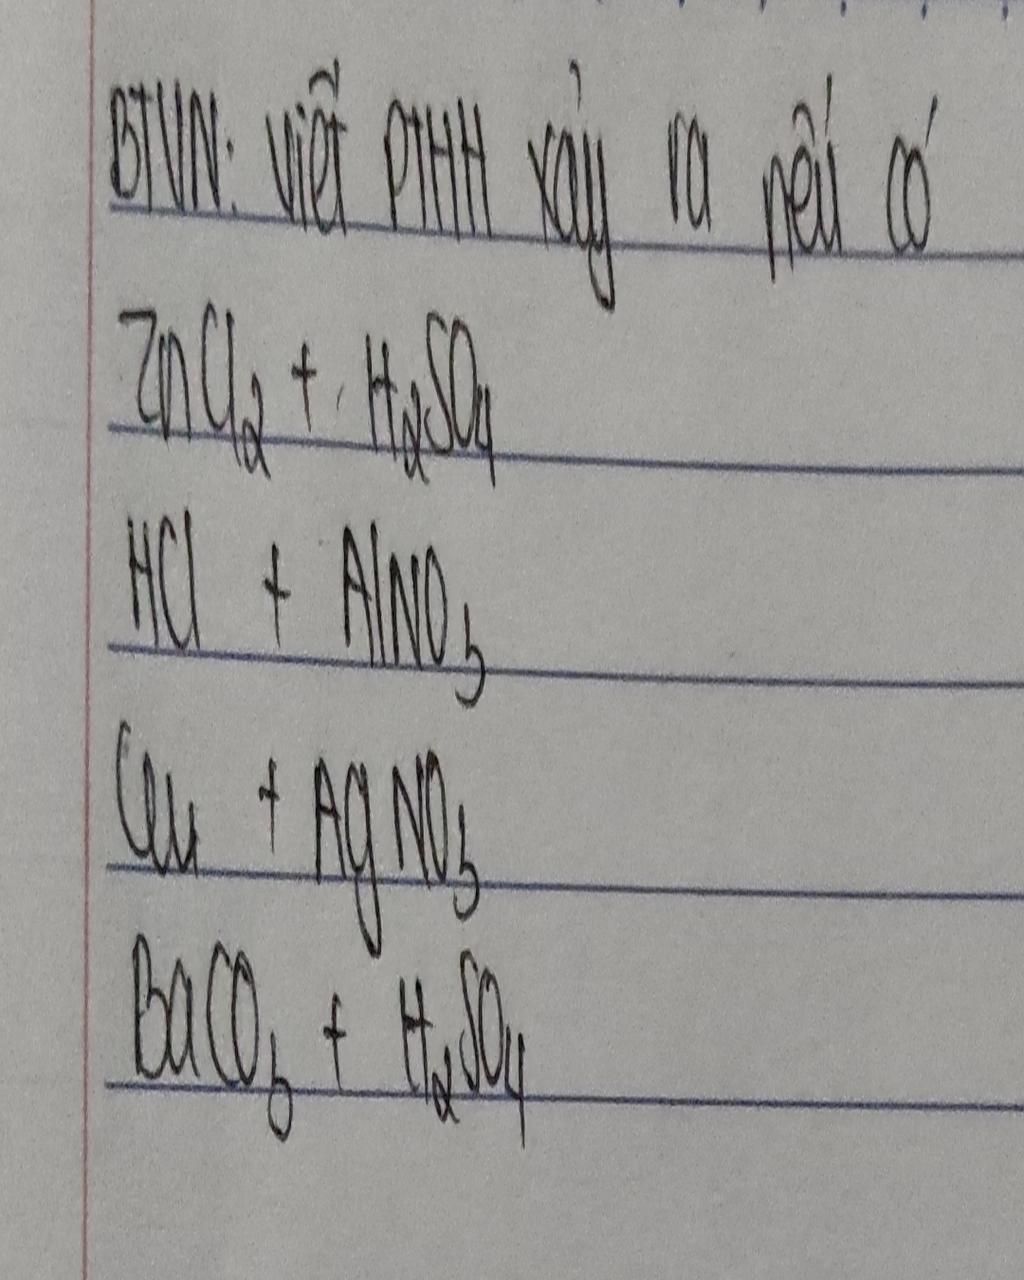 BTVN: viết PTHH xảy ra nếu có
ZnCl₂ + H₂SO₄
HCl + AlNO₃
Cu + AgNO₃
BaCO₃ + H₂SO₄